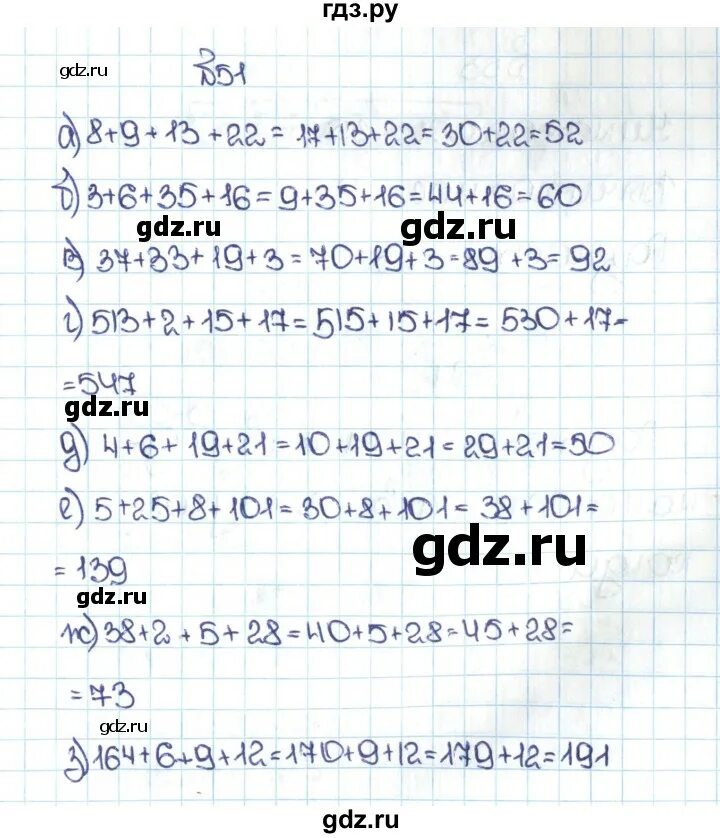 гдз.ру
gdz.ru
№51
а) 8+9+13+22=17+13+22=30+22=52
б) 3+6+35+16=9+35+16=44+16=60
gdz.ru gdz.ru
в) 37+33+19+3=70+19+3=89+3=92
г) 513+2+15+17=515+15+17=530+17=
=547
gdz.ru
д) 4+6+19+21=10+19+21=29+21=50
е) 5+25+8+101=30+8+101=38+101=
gdz.ru
=139
gdz.ru
ж) 38+2+5+28=40+5+28=45+28=
=73
gdz.ru
з) 164+6+9+12=170+9+12=179+12=191
gdz.ru